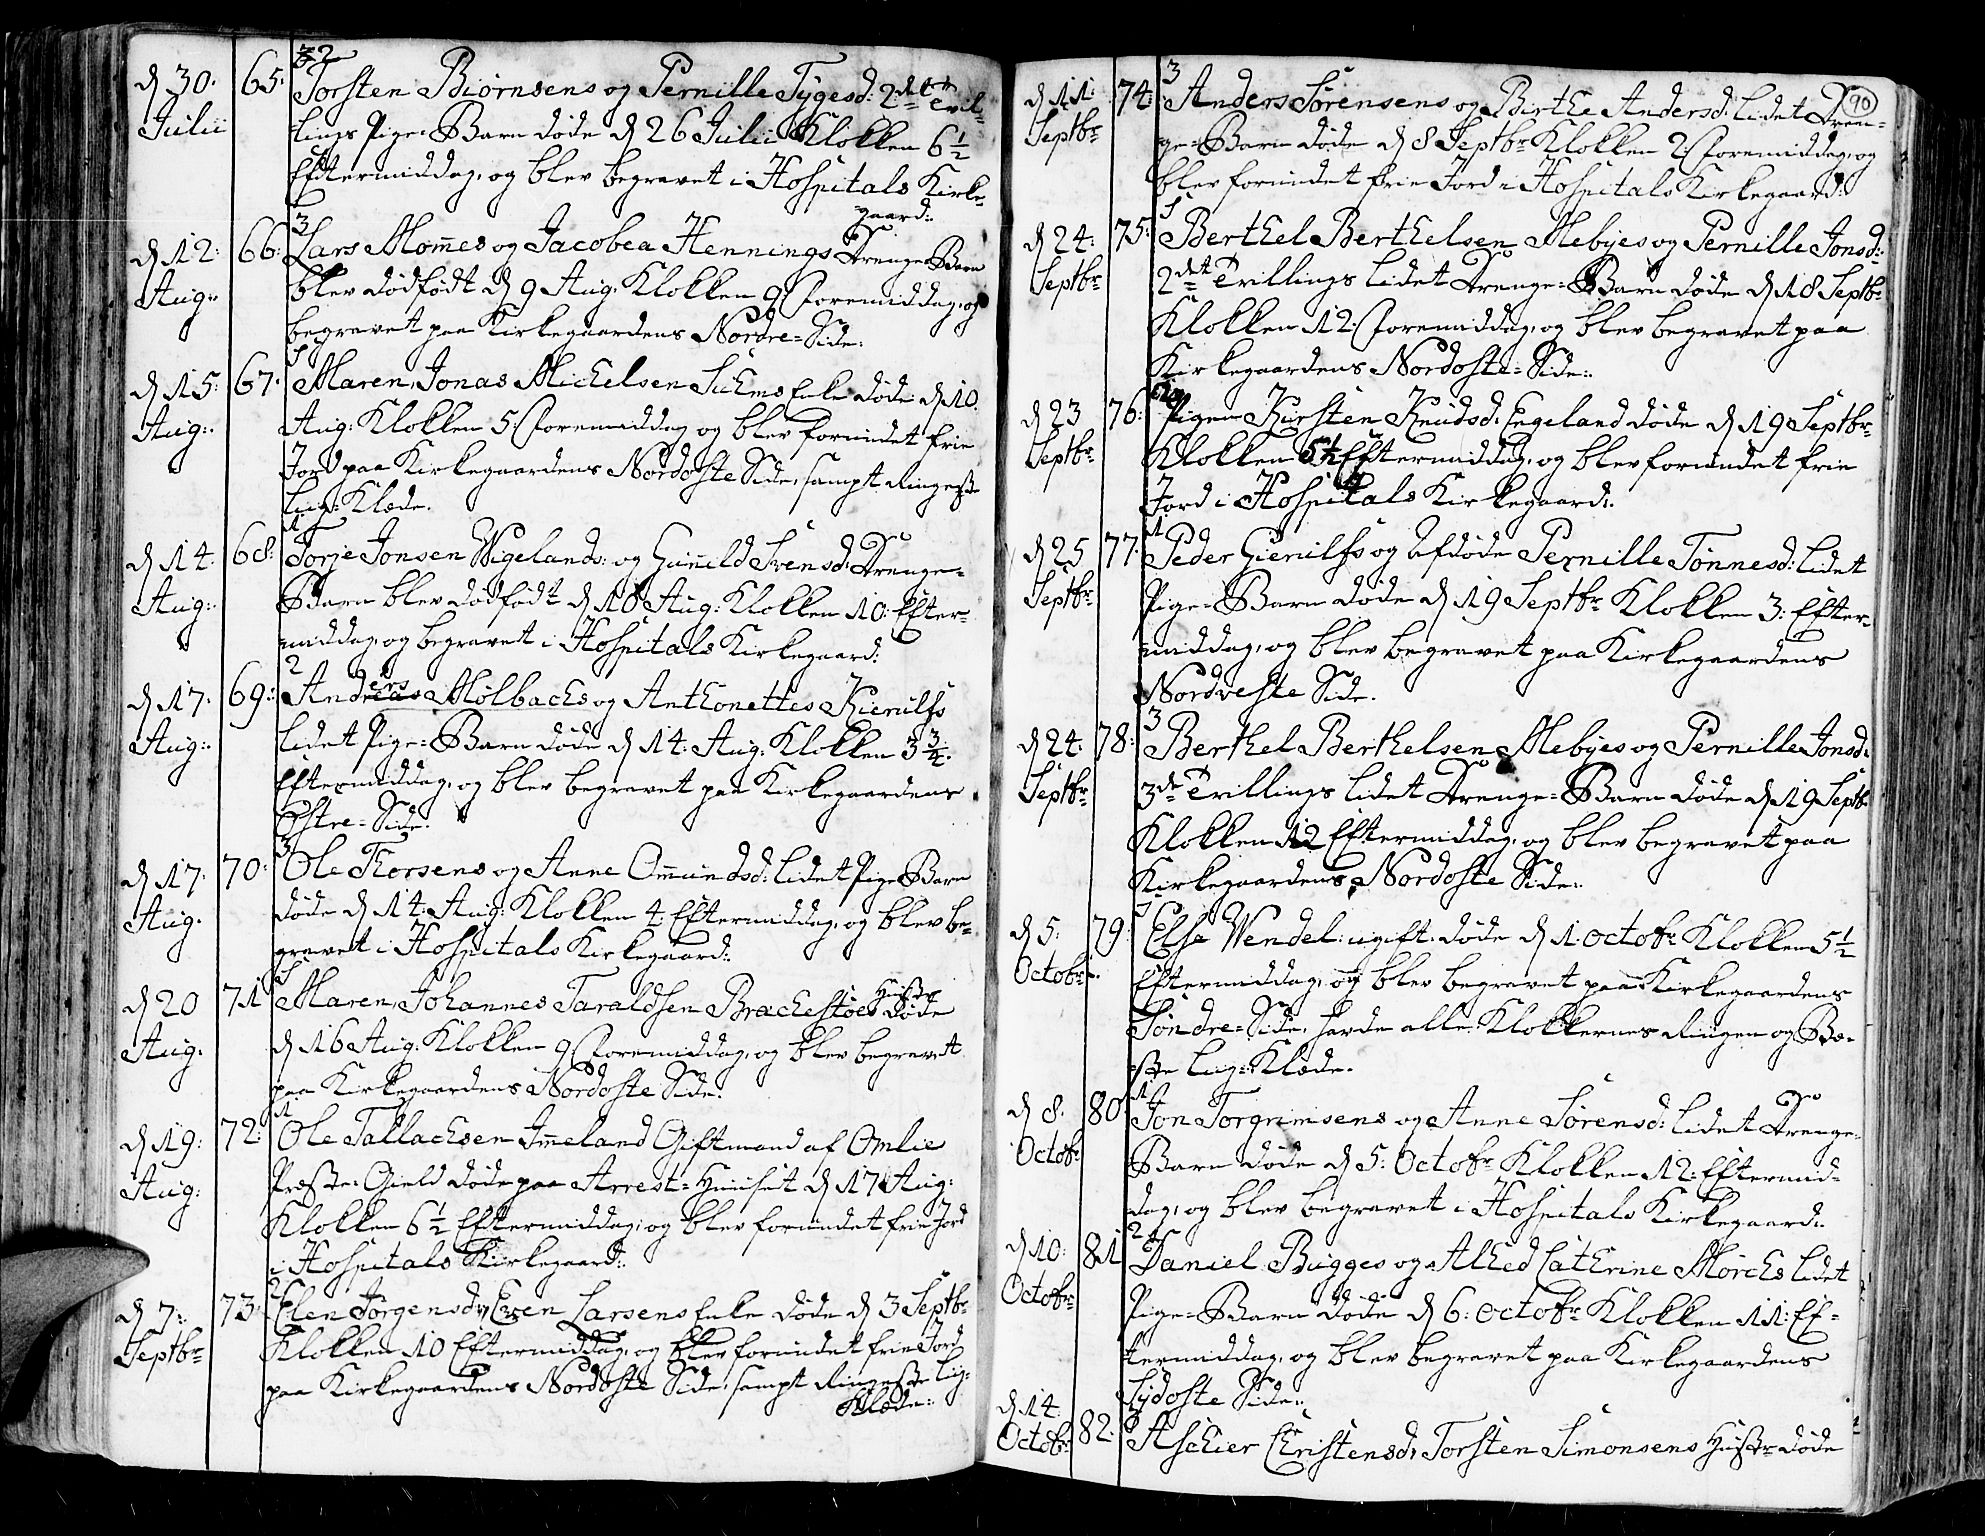 d. 30. 65. 32
Julii Torsten Biørnsens og Pernille Tygesd: 2det Tvil-
lings Pige-Barn døde d. 26 Julii Klokken 6½
Eftermiddag, og blev begravet i Hospitals Kirke-
gaard:
d. 12: 66: 3
Aug: Lars Mom̄es og Jacobea Hennings Drenge Barn
blev dødfødt d. 9 Aug. Klokken 9 Formiddag, og
begravet paa Kirkegaardens Nordre-Side.
d. 15: 67.
Aug: Maren, Jonas Michelsen Enke døde d. 10
Aug: Klokken 5: Formiddag og blev forundet frie
Jord paa Kirkegaardens Nordoste Side, sampt Ringeste
Liig-Klæde.
d. 14: 68: 1
Aug: Torje Jonsen Wigelands: og Gun̄ild Svensd: Drenge-
Barn blev dødfødt d. 10 Aug: Klokken 10: Efter-
middag, og begravet i Hospitals Kirkegaard:
d. 17: 69: 2
Aug: Anders Mølbachs og Anthonettes Kierulfs
lidet Pige-Barn døde d. 14: Aug: Klokken 3¾.
Eftermiddag, og blev begravet paa Kirkegaardens
Østre-Side.
d. 17: 70: 3
Aug. Ole Thorsens og Anne Om̄undsd: lidet Pige Barn
døde d. 14: Aug: Klokken 4: Eftermiddag, og blev be-
gravet i Hospitals Kirkegaard:
d. 20 71
Aug. Maren, Johannes Taraldsen Brachestøes Hustr døde
d. 16 Aug: Klokken 9 Formiddag, og blev begravet
paa Kirkegaardens Nordoste Side.
d. 19: 72: 1
Aug: Ole Tallachsen Im̄eland Giftmand af Omlie
Præste-Gield døde paa Arrest-Huuset d. 17 Aug:
Klokken 6½ Eftermiddag, og blev forundet frie Jord
i Hospitals Kirkegaard:
d. 7: 73: 2
Septbr Elen Jørgensd, Even Larsens Enke døde d. 3 Septbr
Klokken 10 Eftermiddag, og blev forundet frie Jord
paa Kirkegaardens Nordoste Side, sampt Ringeste Liig-
Klæde:
90
d. 11: 74: 3
Septbr Anders Sørensens og Birthe Andersd: lidet Dren-
ge-Barn døde d. 8 Septbr Klokken 2: Formiddag, og
blev forundet frie Jord i Hospitals Kirkegaard:
d. 24: 75:
Septbr Berthel Berthelsen Mebyes og Pernille Jonsd:
2det Trillings lidet Drenge-Barn døde d. 18 Septbr
Klokken 12: Formiddag, og blev begravet paa
Kirkegaardens Nordoste-Side:
d. 23 76:
Septbr Pigen Kirsten Knudsd: Egeland døde d. 19 Septbr
Klokken 5½ Eftermiddag, og blev forundet frie
Jord i Hospitals Kirkegaard:
d. 25 77: 1
Septbr Peder Gierulfs og Afdøde Pernille Tønnesd: lidet
Pige-Barn døde d. 19 Septbr Klokken 3: Efter-
middag, og blev begravet paa Kirkegaardens
Nordveste Side.
d. 24: 78: 3
Septbr Berthel Berthelsen Mebyes og Pernille Jonsd:
3de Trillings lidet Drenge-Barn døde d. 19 Septbr
Klokken 12 Eftermiddag, og blev begravet paa
Kirkegaardens Nordoste Side:
d. 5: 79:
Octobr. Else Wendel: ugift: døde d. 1. Octobr Klokken 5½
Eftermiddag, og blev begravet paa Kirkegaardens
Søndre-Side, havde alle Klokkernes Ringen og Be-
ste Liig-Klæde.
d. 8. 80 1
Octobr Jon Torgrimsens og Anne Sørensd: lidet Drenge-
Barn døde d. 5: Octobr Klokken 12: Eftermid-
dag, og blev begravet i Hospitals Kirkegaard:
d. 10: 81 2
Octobr Daniel Bugges og Alhed Cathrine Mørchs lidet
Pige-Barn døde d. 6: Octobr Klokken 11: Ef-
termiddag, og blev begravet paa Kirkegaardens
Sydoste Side:
d. 14: 82:
Octobr Aschier Christensd, Torsten Simonsens Hustr døde